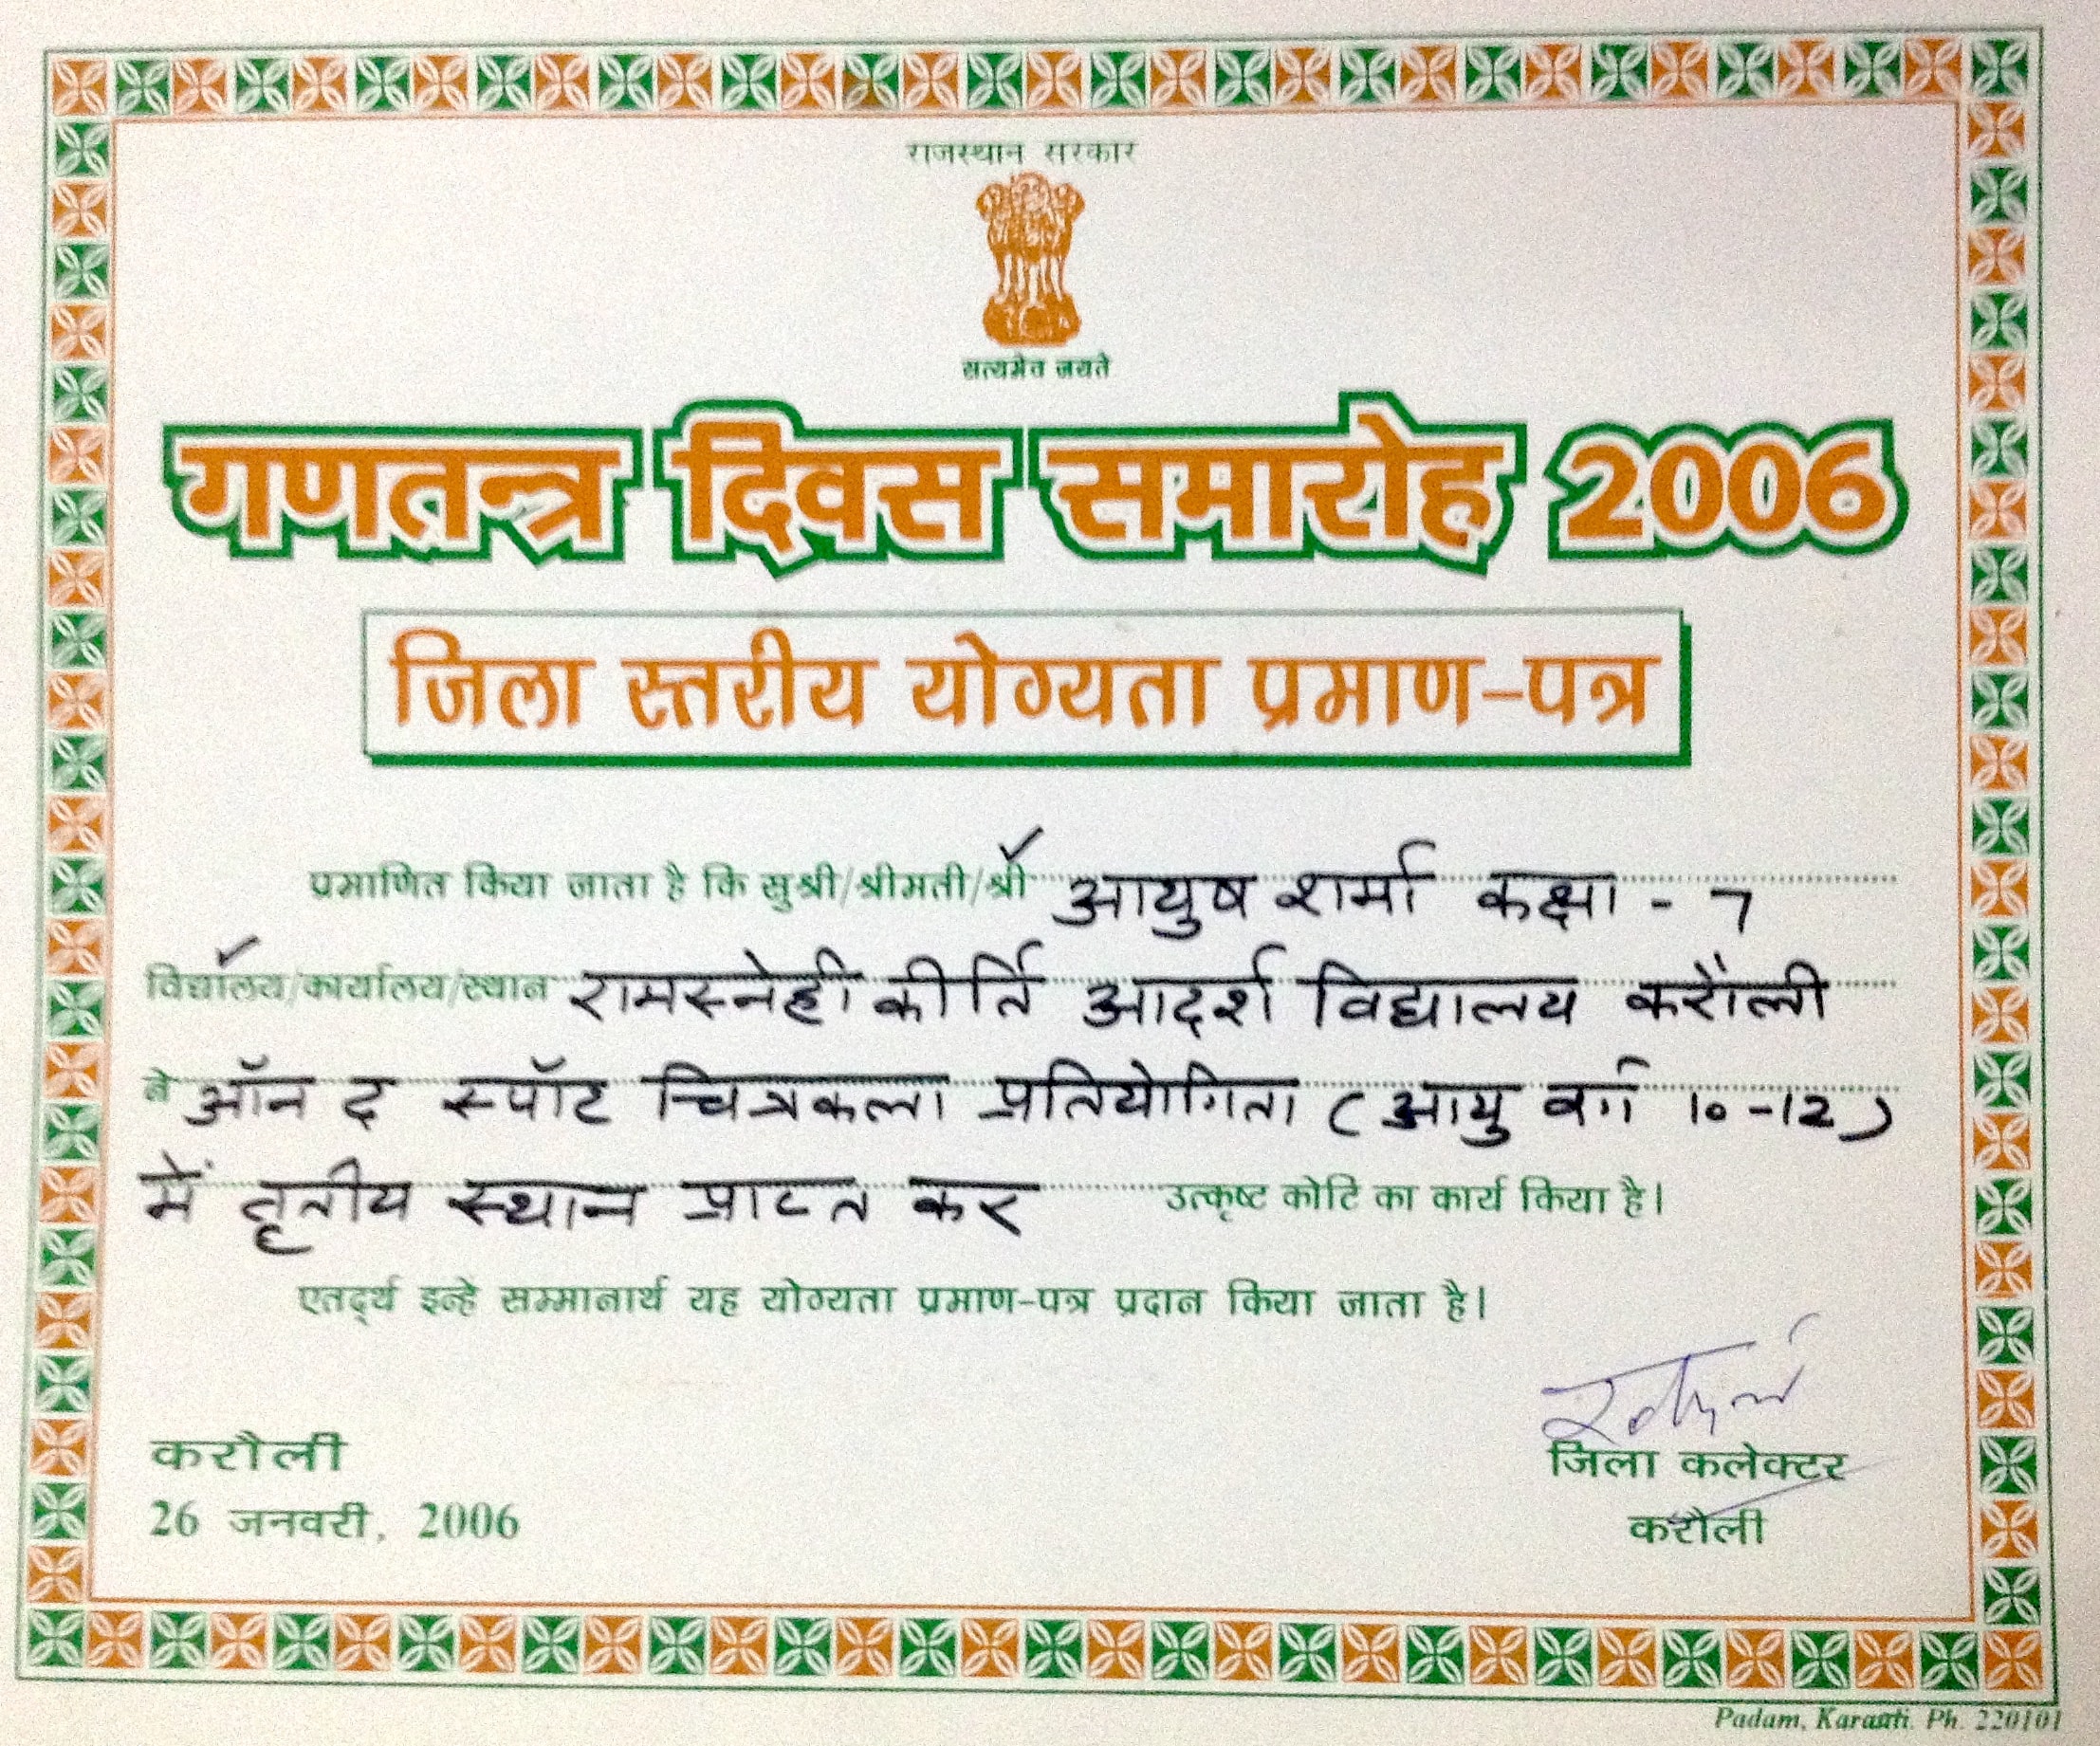 राजस्थान सरकार
सत्यमेव जयते
गणतन्त्र दिवस समारोह 2006
जिला स्तरीय योग्यता प्रमाण-पत्र
प्रमाणित किया जाता है कि सुश्री/श्रीमती/श्री आयुष शर्मा कक्षा - 7
विद्यालय/कार्यालय/स्थान रामस्नेही कीर्ति आदर्श विद्यालय करौली
ने ऑन द स्पॉट चित्रकला प्रतियोगिता (आयु वर्ग 10-12)
में तृतीय स्थान प्राप्त कर उत्कृष्ट कोटि का कार्य किया है।
एतदर्थ इन्हे सम्मानार्थ यह योग्यता प्रमाण-पत्र प्रदान किया जाता है।
करौली
26 जनवरी, 2006
जिला कलेक्टर
करौली
Padam, Karauli. Ph. 220101